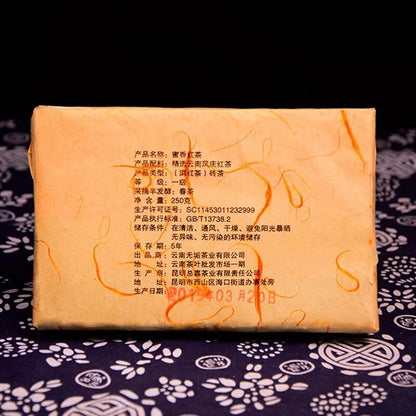 产品名称：蜜香红茶
产品配料：精选云南凤庆红茶
产品类型：（滇红茶）砖茶
等 级：一级
采摘半发酵：春茶
净 含 量：250克
生产许可证号：SC11453011232999
产品执行标准：GB/T13738.2
储存条件：在清洁、通风、干燥、避免阳光暴晒
无异味、无污染的环境储存
保 存 期：5年
出 品 商：云南无垢茶业有限公司
地 址：云南茶叶批发市场一期
生 产 商：昆明总嘉茶业有限责任公司
地 址：昆明市西山区海口街道办事处旁
生产日期：2019年03月20日